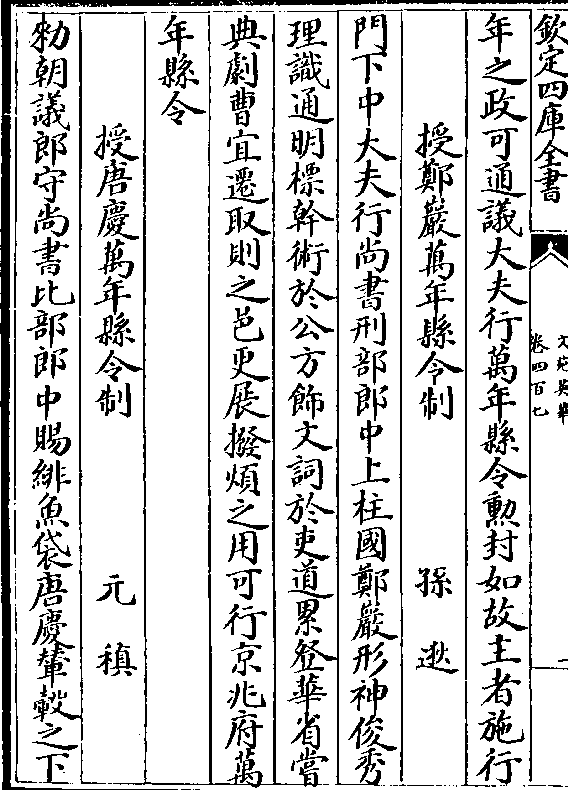 欽定四庫全書
文苑英華
卷四百七
一
年之政可通議大夫行萬年縣令勲封如故主者施行
授鄭巖萬年縣令制 孫逖
門下中大夫行尚書刑部郎中上柱國鄭巖形神俊秀
理識通明標幹術於公方飾文詞於吏道累登華省嘗
典劇曹宜遷取則之邑更展撥煩之用可行京兆府萬
年縣令
授唐慶萬年縣令制 元稹
勑朝議郎守尚書比部郎中賜緋魚袋唐慶輦轂之下